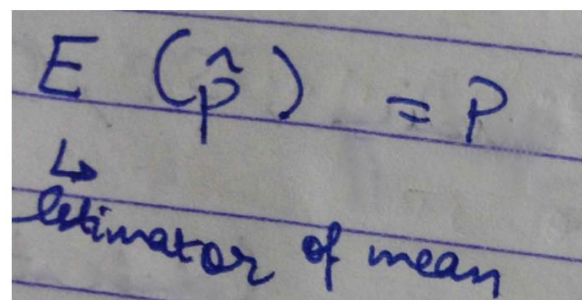 E (p̂) = P
↳
Estimator of mean